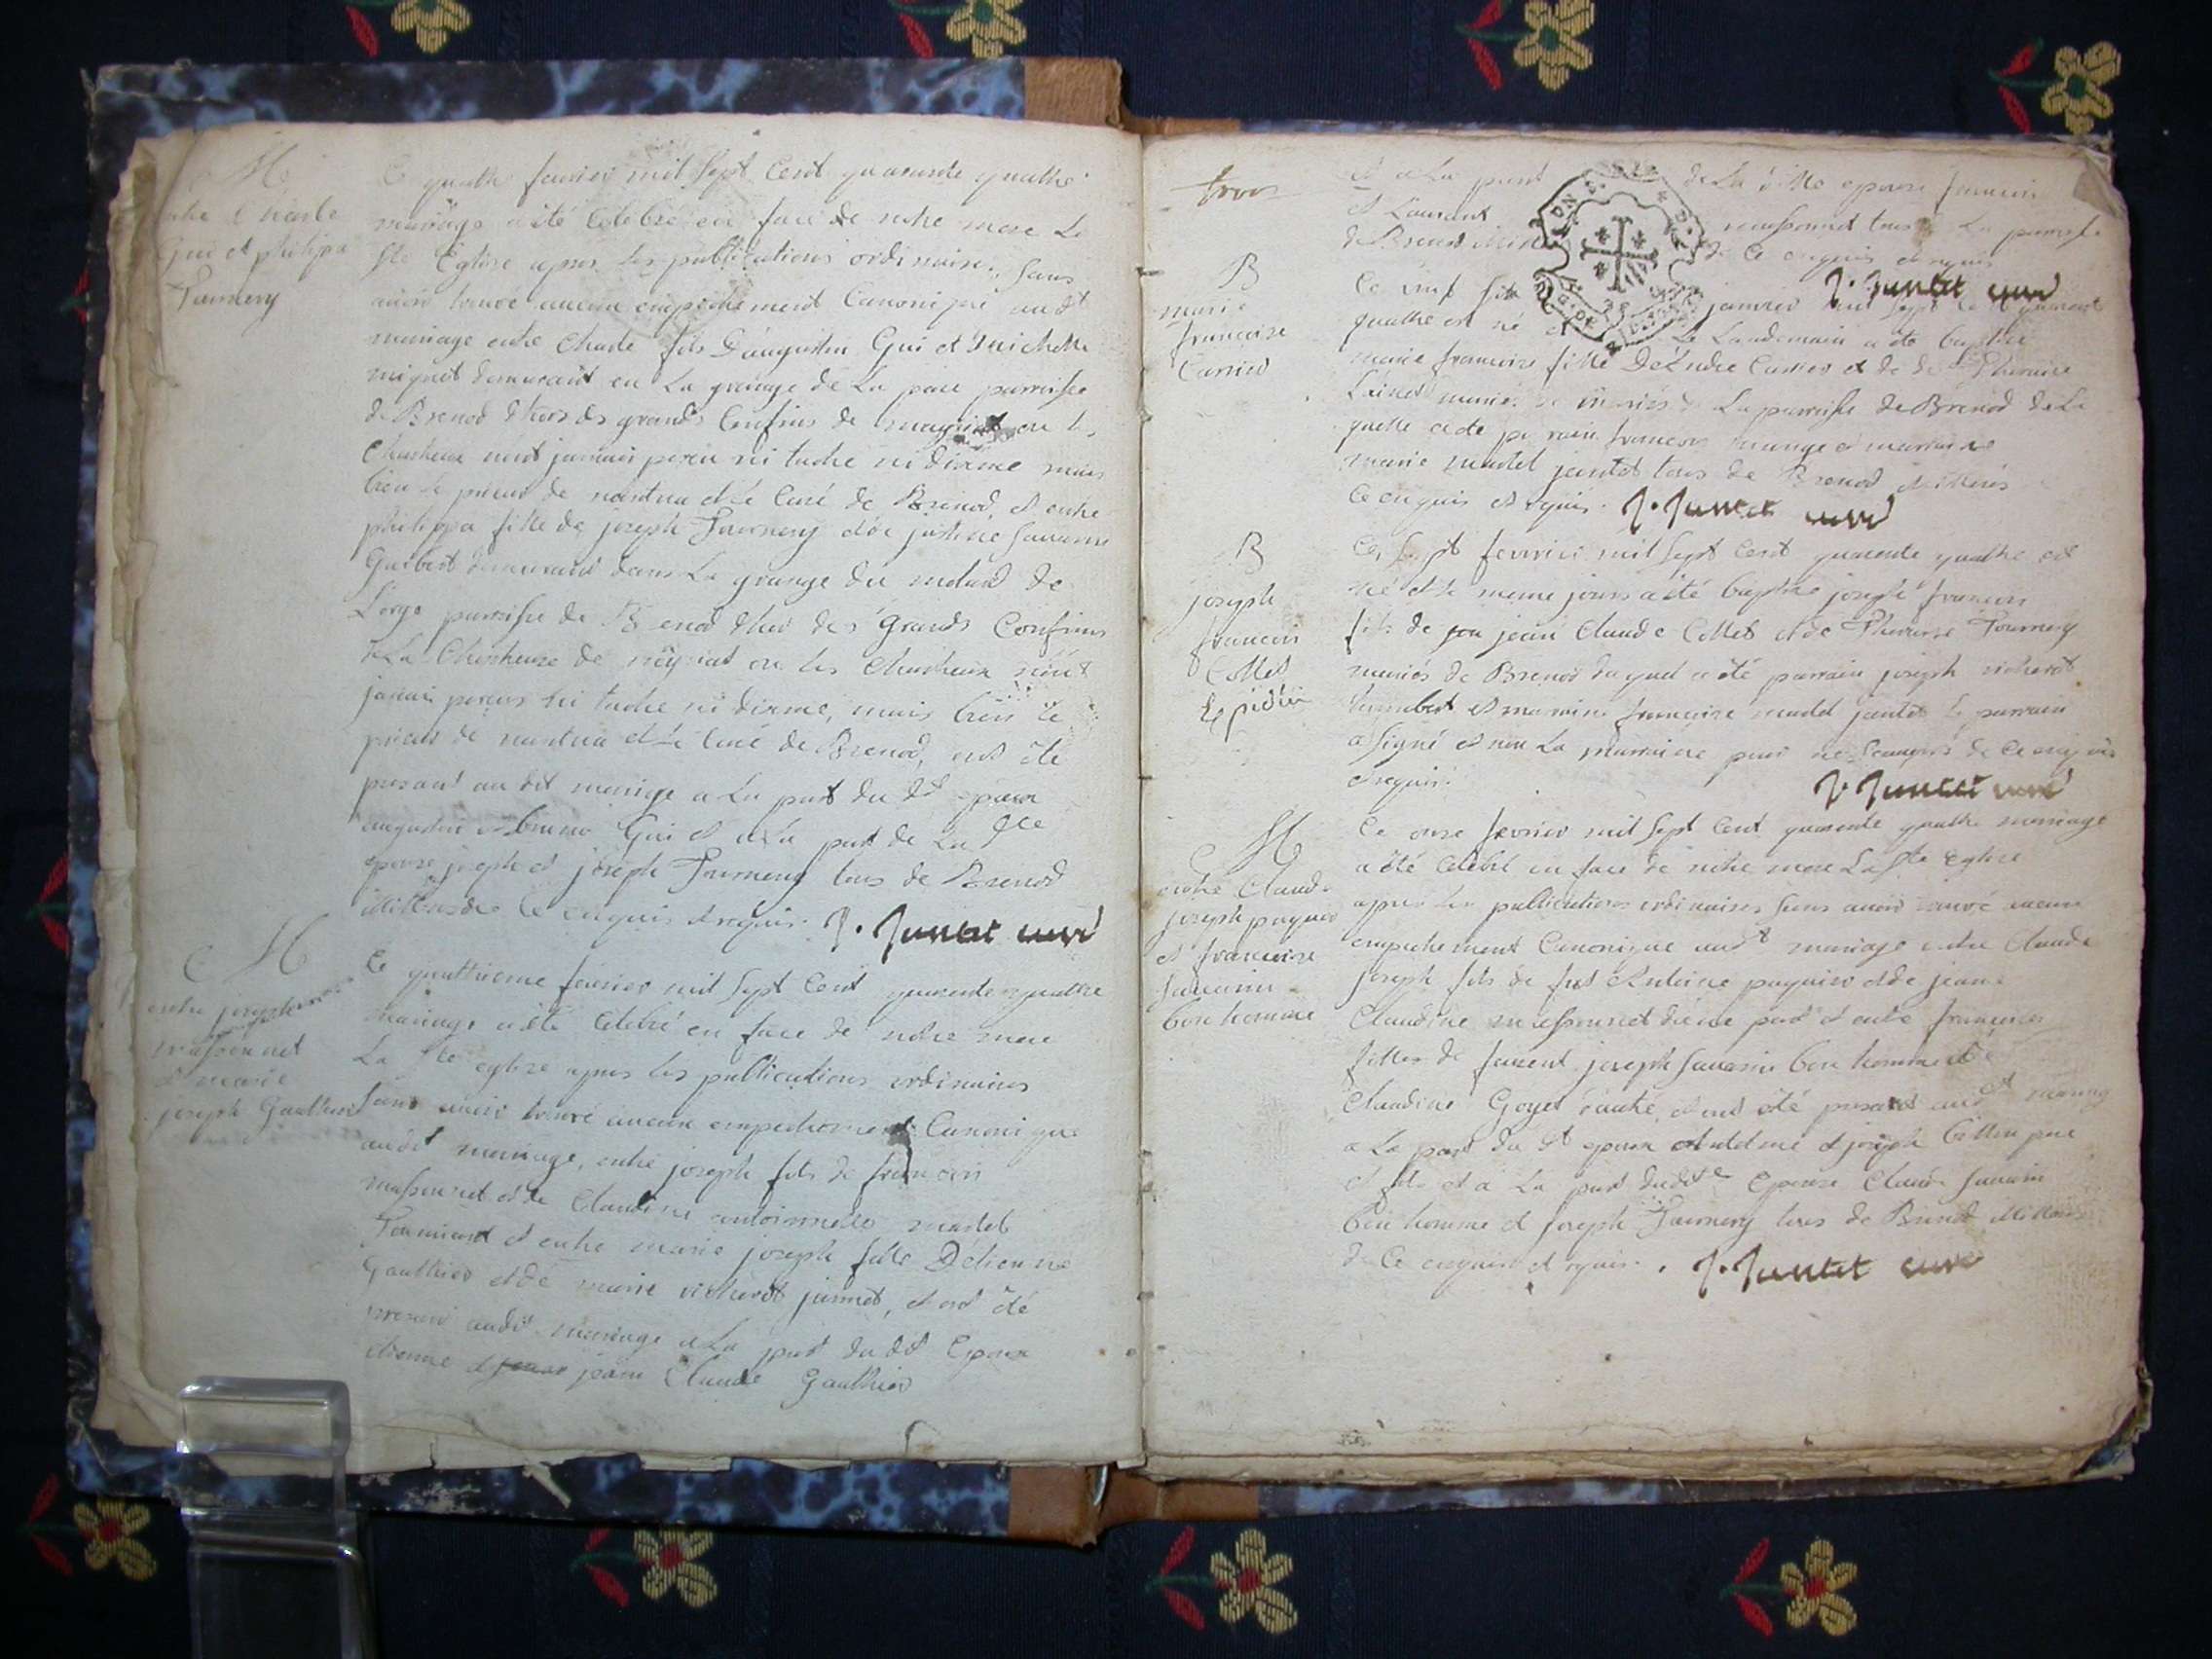 M
entre Charle
Gui et philippa
Tournery
Ce quatre fevrier mil sept cent quarante quatre
mariage a été celebré en face de notre mere La
Ste Eglise apres les publications ordinaires sans
auoir trouvé aucun empechement Canonique audt
mariage entre Charle fils D'augustin Gui et michelle
mignot demeurant en La grange de La paroisse
de Brenod d hors des grands Confins de meyriat ou les
Chartreux n'ont jamais perçu ni tache ni dixme mais
bien le prieur de nantua et Le Curé de Brenod, et entre
philippa fille de joseph Tournery et de justine Sauarin
Guibert demeurant dans La grange du molard de
L'orge paroisse de Brenod d hors des grands Confins
de La Chartreuse de meyriat ou les Chartreux n'ont
jamais perçus ni tache ni dixme, mais bien le
prieur de nantua et Le Curé de Brenod, ont été
presant au dit mariage a La part du dt epoux
augustin et bruno Gui et a La part de La dte
epouse joseph et joseph Tournery tous de Brenod
illitterés de Ce enquis et requis. J. Juntet curé
M
entre joseph
massonnet
et marie
joseph Gauthier
Ce quattrieme fevrier mil sept Cent quarante quattre
mariage a été Celebré en face de notre mere
La Ste eglise apres les publications ordinaires
sans auoir trouvé aucun empechement Canonique
audit mariage, entre joseph fils de francois
massonnet et de Claudine antoinette martel
et entre marie joseph fille D'etienne
Gauthier et de marie richerot jannet, et ont été
presant audit mariage a La part du dt Epoux
etienne et jean Claude Gauthier
trois
et a La part de La ditte epouse
et Laurent massonnet tous de La paroisse
de Brenod de Ce enquis et requis
J. Juntet curé
B
marie
francoise
Carrier
Ce vint janvier mil sept cent quarante
quattre est né et Le Landemain a été baptisée
marie francoise fille D'andre Carrier et de
mariés de La paroisse de Brenod de La
quelle a été parrain francois et marraine
marie martel jantet tous de Brenod illiterés
Ce enquis et requis. J. Juntet curé
B
joseph
francois
Collet
Ce sept fevrier mil sept cent quarante quatre est
né et le meme jours a été baptisé joseph francois
fils de jean Claude Collet et de Tournery
mariés de Brenod du quel a été parrain joseph richerot
humbert et marraine francoise martel jantet le parrain
a signé et non La marraine pour ne scauoir de Ce enquis
et requis.
J. Juntet curé
M
entre Claude
joseph paquier
et francoise
Sauarin
bon homme
Ce onze fevrier mil sept Cent quarante quatre mariage
a été Celebré en face de notre mere La Ste Eglise
apres Les publications ordinaires sans auoir trouvé aucun
empechement Canonique audt mariage entre Claude
joseph fils de fut Antoine paquier et de jeanne
Claudine massonnet d'une part et entre francoise
filles de joseph Sauarin bon homme et de
Claudine Goyet d'autre, et ont été presant audt mariag
a La part du dt epoux Antelme et joseph billion pere
et fils et a La part dudite Epouse Claude Sauarin
bon homme et joseph Tournery tous de Brenod illitterés
de Ce enquis et requis. J. Juntet curé